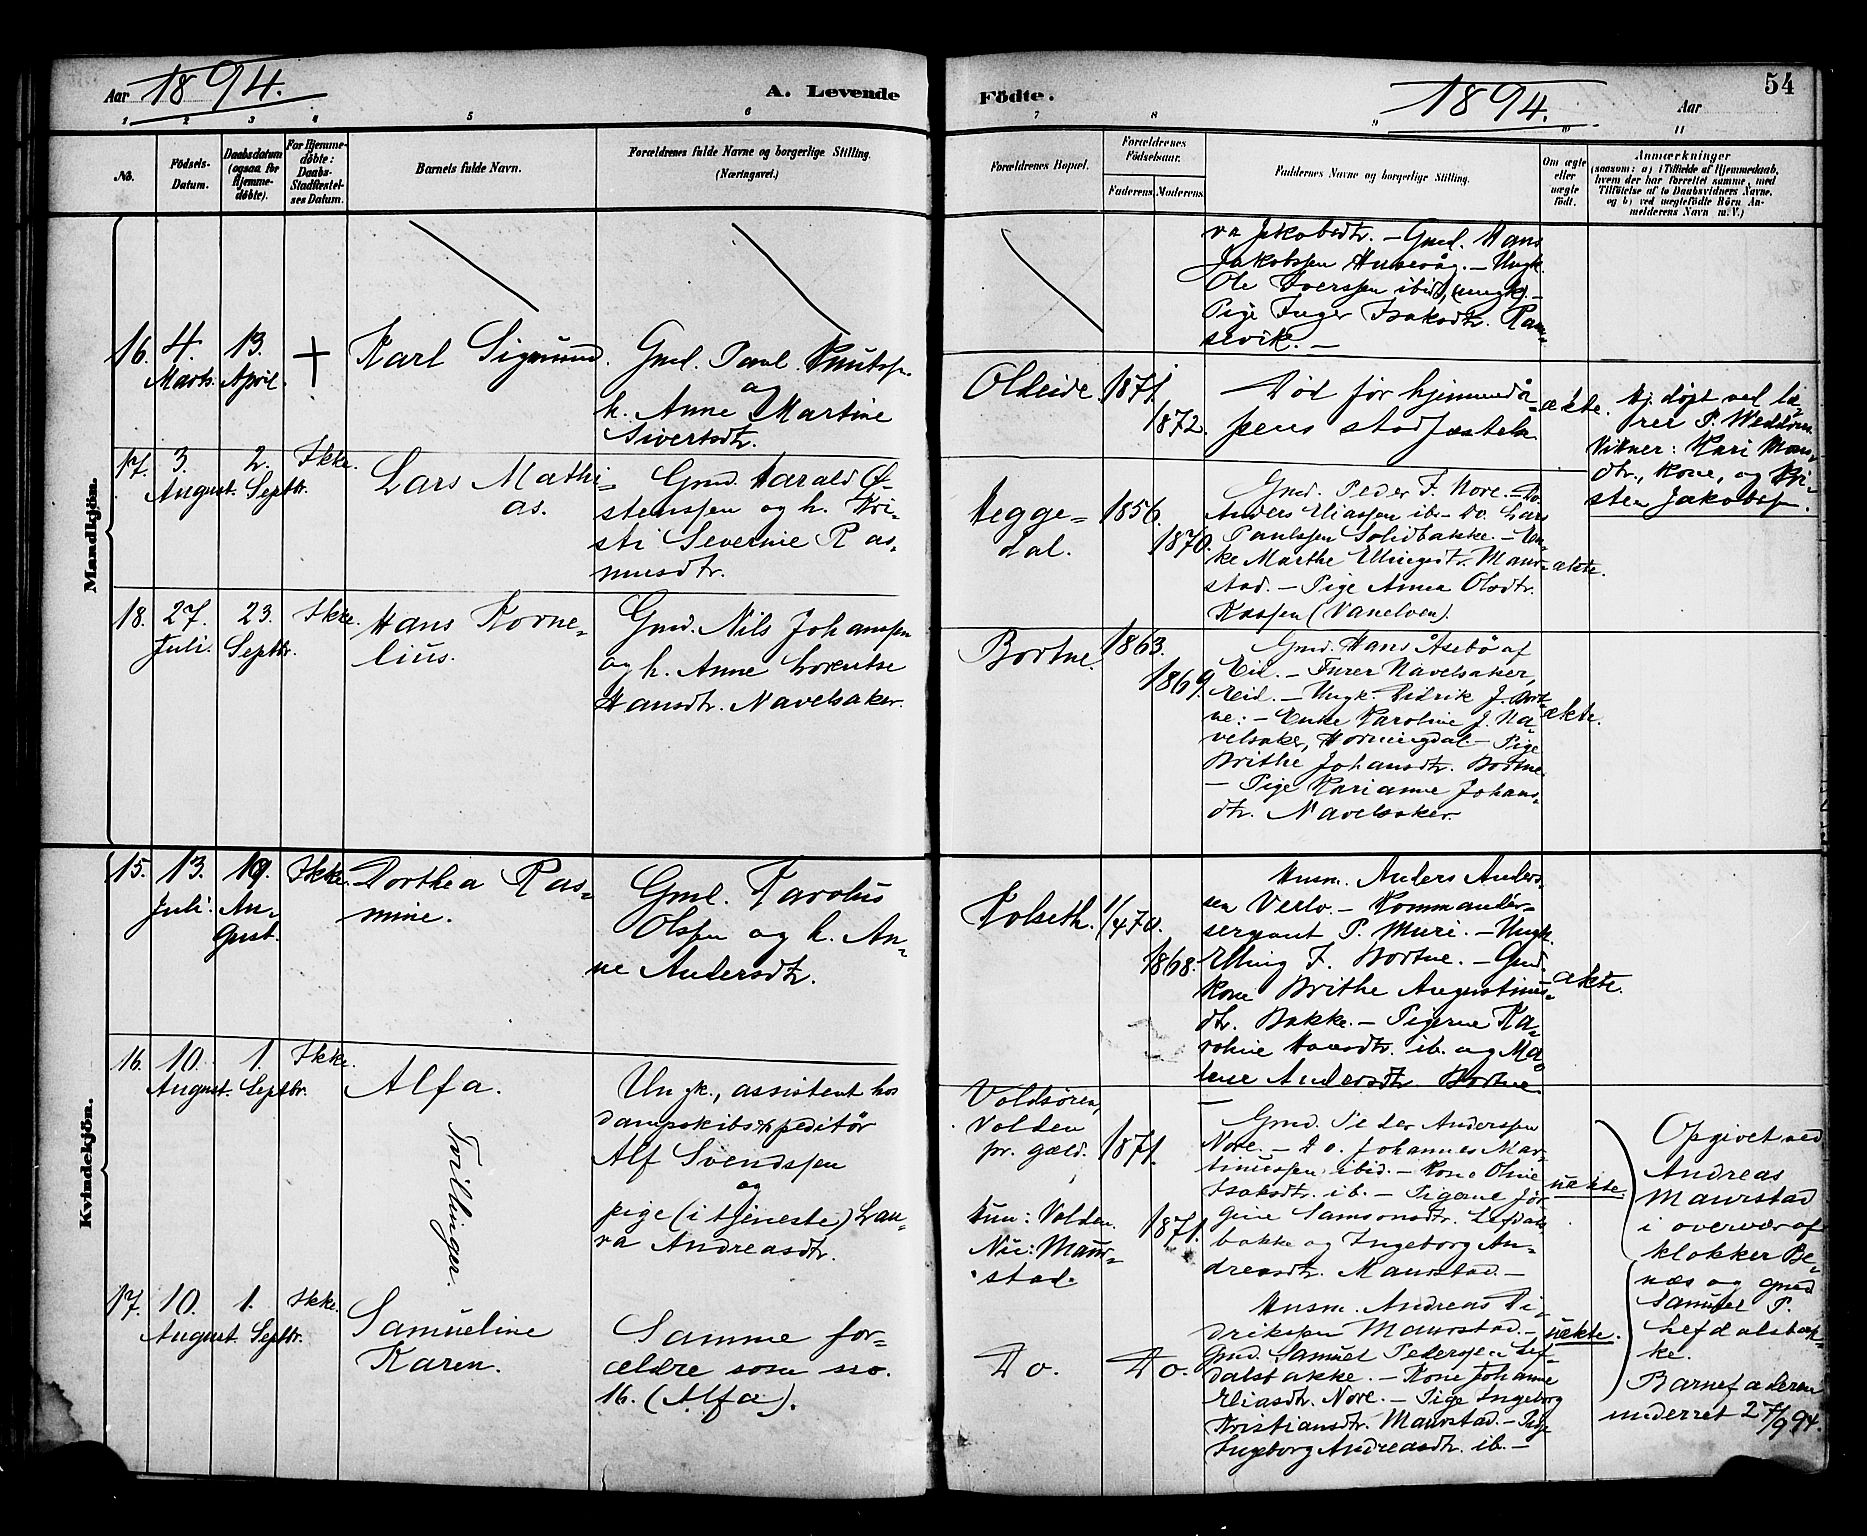 Aar 1894.
A. Levende
Födte.
1894.
Aar
54
1 2 3 4 5 6 7 8 9 10 11
No.
Födsels-
Datum.
Daabsdatum
(ogsaa for
Hjemme-
döbte).
For Hjemme-
döbte:
Daabs-
Stadfæstel-
ses Datum.
Barnets fulde Navn.
Forældrenes fulde Navne og borgerlige Stilling.
(Næringsvei.)
Forældrenes Bopæl.
Forældrenes
Födselsaar.
Faderens. Moderens.
Faddernes Navne og borgerlige Stilling.
Om ægte
eller
uægte
födt.
Anmærkninger
(saasom: a) i Tilfælde af Hjemmedaab,
hvem der har forrettet samme, med
Tilföielse af to Daabsvidners Navne,
og b) ved uægtefödte Börn An-
melderens Navn m. V.)
Mandkjön.
va Jakobsdtr. – Gmd. Hans
Jakobssen Husevåg. – Ungk.
Ole Iverssen ibid, (ungk). –
Pige Inger Isaksdtr. Ram-
sevik. –
16.
4.
Marts.
13.
April.
+
Karl Sigmund.
Gmd. Paul Knutss.
og
h. Anne Martine
Sivertsdtr.
Oldeide.
1871.
1872.
Død før hjemmedå-
pens stadfæstelse.
ækte.
Hj. døpt ved læ-
rer P. Weddem
Vitner: Kari Hans-
dtr., kone, og Kri-
sten Jakobss.
17.
3.
August.
2.
Septbr.
Ikke.
Lars Mathi-
as.
Gmd. Harald Ø-
stenssen og h. Kri-
sti Severine Ras-
musdtr.
Hegge-
dal.
1856.
1870.
Gmd. Peder J. Nore. – Do.
Anders Eliassen ib. – Do. Lars
Paulssen Solidbakke. – En-
ke Marthe Ellingsdtr. Maur-
stad. – Pige Anna Olsdtr.
Kassen (Vanelven).
ækte.
18.
27.
Juli.
23.
Septbr.
Ikke.
Hans Korne-
lius.
Gmd. Nils Johanssen
og h. Anne Lorentse
Hansdtr. Navelsaker.
Bortne.
1863.
1869.
Gmd. Hans Åsebø af
Eid. – Furer Navelsaker,
Eid. – Ungk. Didrik J. Bort-
ne: – Enke Karoline J. Na-
velsaker, Horningdal – Pige
Brithe Johansdtr. Bortne.
– Pige Karianne Johans-
dtr. Navelsaker.
ækte.
Kvindekjön.
15.
13.
Juli.
19.
Au-
gust.
Ikke.
Dorthea Ras-
mine.
Gmd. Karolus
Olssen og h. An-
ne Andersdtr.
Kolseth.
1/4 70.
1868.
Husm. Anders Anders-
sen Verlo. – Kommander-
sergeant P. Muri. – Ungk.
Elling J. Bortne. – Gmd.
kone Brithe Augustinus-
dtr. Bakke. – Pigerne Ka-
roline Hansdtr. ib. og Ma-
lene Andersdtr. Bortne
–
ækte.
16.
10.
August.
1.
Septbr.
Ikke.
Alfa.
Tvillinger.
Ungk., assistent hos
dampskibsexpeditør
Alf Svendssen
og
pige (i tjeneste) Lau-
ra Andreasdtr.
Voldsøren,
Volden
pr. gæld.
hun: Volden.
Nu: Maur-
stad.
1871.
1871.
Gmd. Peder Anderssen
Nore. – Do. Johannes Mar-
tinussen ibid. – Kone Oline
Isaksdtr. ib. – Pigerne Jør-
gine Samsonsdtr. Lefdals-
bakke og Ingeborg An-
dreasdtr. Maurstad. –
uækte.
Opgivet ved
Andreas
Maurstad
i overvær af
klokker Be-
næs og gmd
Samuel P.
Lefdalsbak-
ke.
Barnefaderen
underret 27/9 94.
17.
10.
August.
1.
Septbr.
Ikke.
Samueline
Karen.
Samme for-
ældre som no.
16. (Alfa).
Do.
Do.
Husm. Andreas Di-
drikssen Maurstad. –
Gmd. Samuel Pederssen Lef-
dalsbakke. – Kone Johanne
Eliasdtr. Nore. – Pige Ingeborg
Kristiansdtr. Maurstad. – Pige
Ingeborg Andreasdtr. ib. –
uækte.